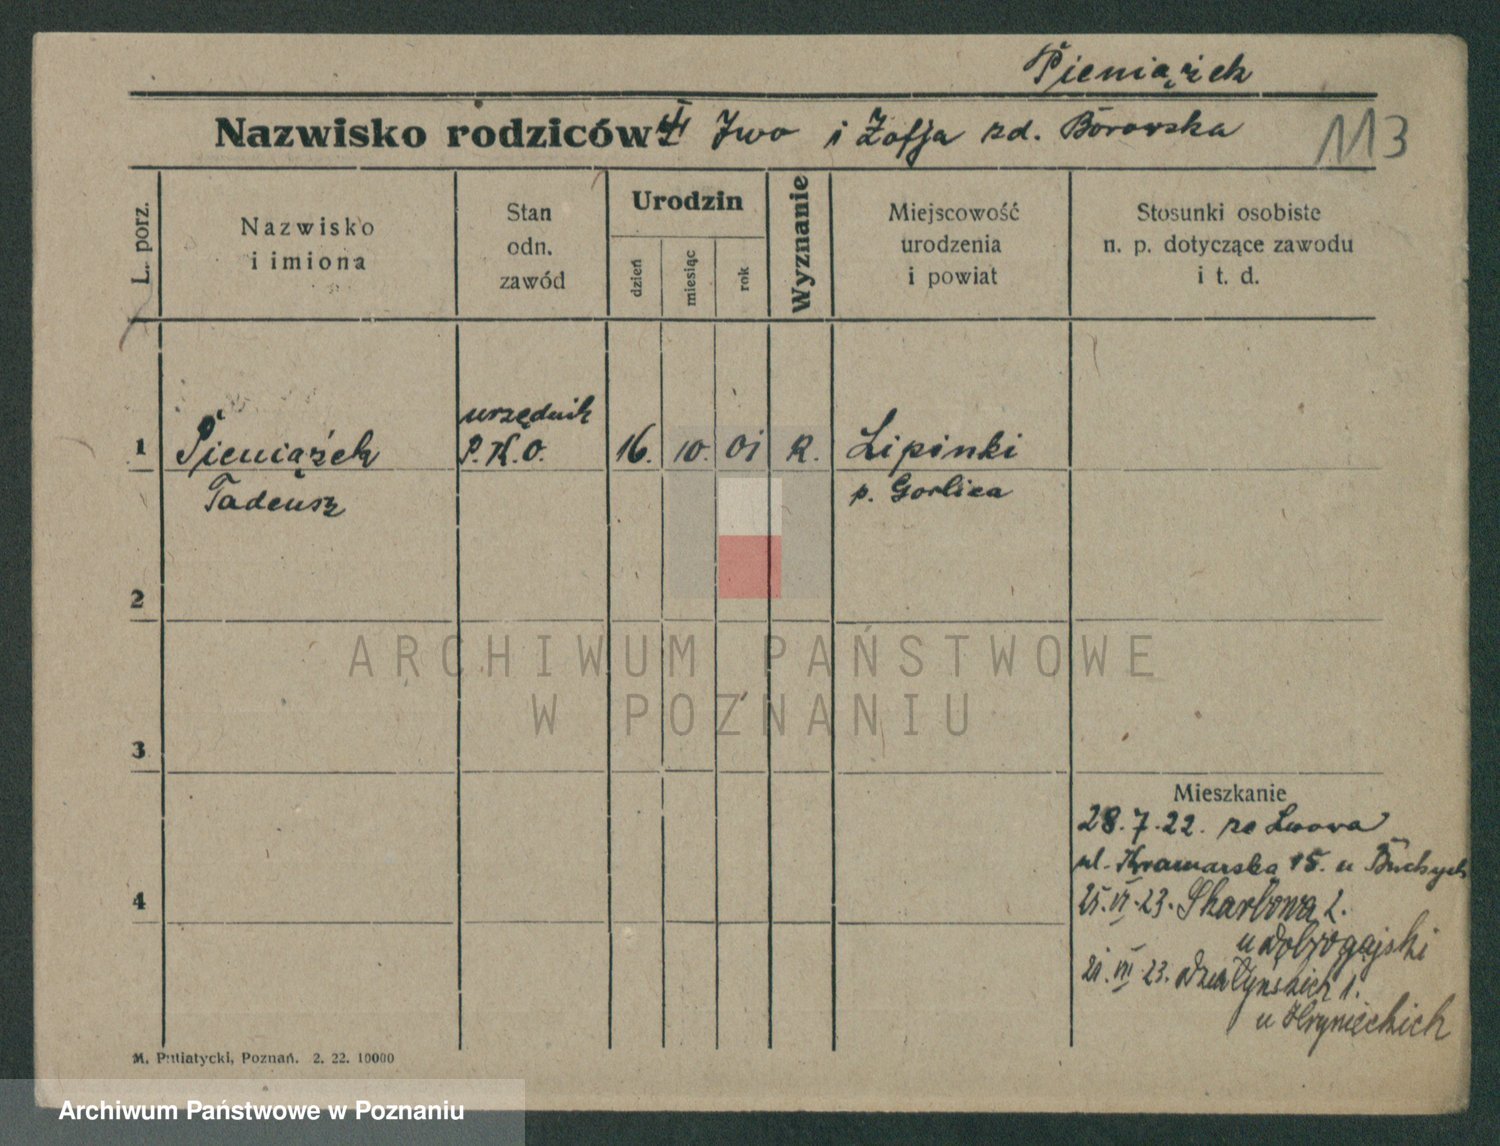 Pieniążek
Nazwisko rodziców Iwo i Zofja zd. Borowska
113
L. porz.
Nazwisko
i imiona
Stan
odn.
zawód
Urodzin
dzień
miesiąc
rok
Wyznanie
Miejscowość
urodzenia
i powiat
Stosunki osobiste
n. p. dotyczące zawodu
i t. d.
urzędnik
1 Pieniążek P.K.O. 16. 10. 01 R. Lipinki
Tadeusz p. Gorlica
2
3
4
Mieszkanie
28.7.22. ze Lwowa
ul. Kramarska 15. u
25.VI.23. Skarbowa 2.
u Dobrogojski
VIII 23. Działyńskich 1.
u Hryniechich
M. Putiatycki, Poznań. 2. 22. 10000
ARCHIWUM PAŃSTWOWE
W POZNANIU
Archiwum Państwowe w Poznaniu